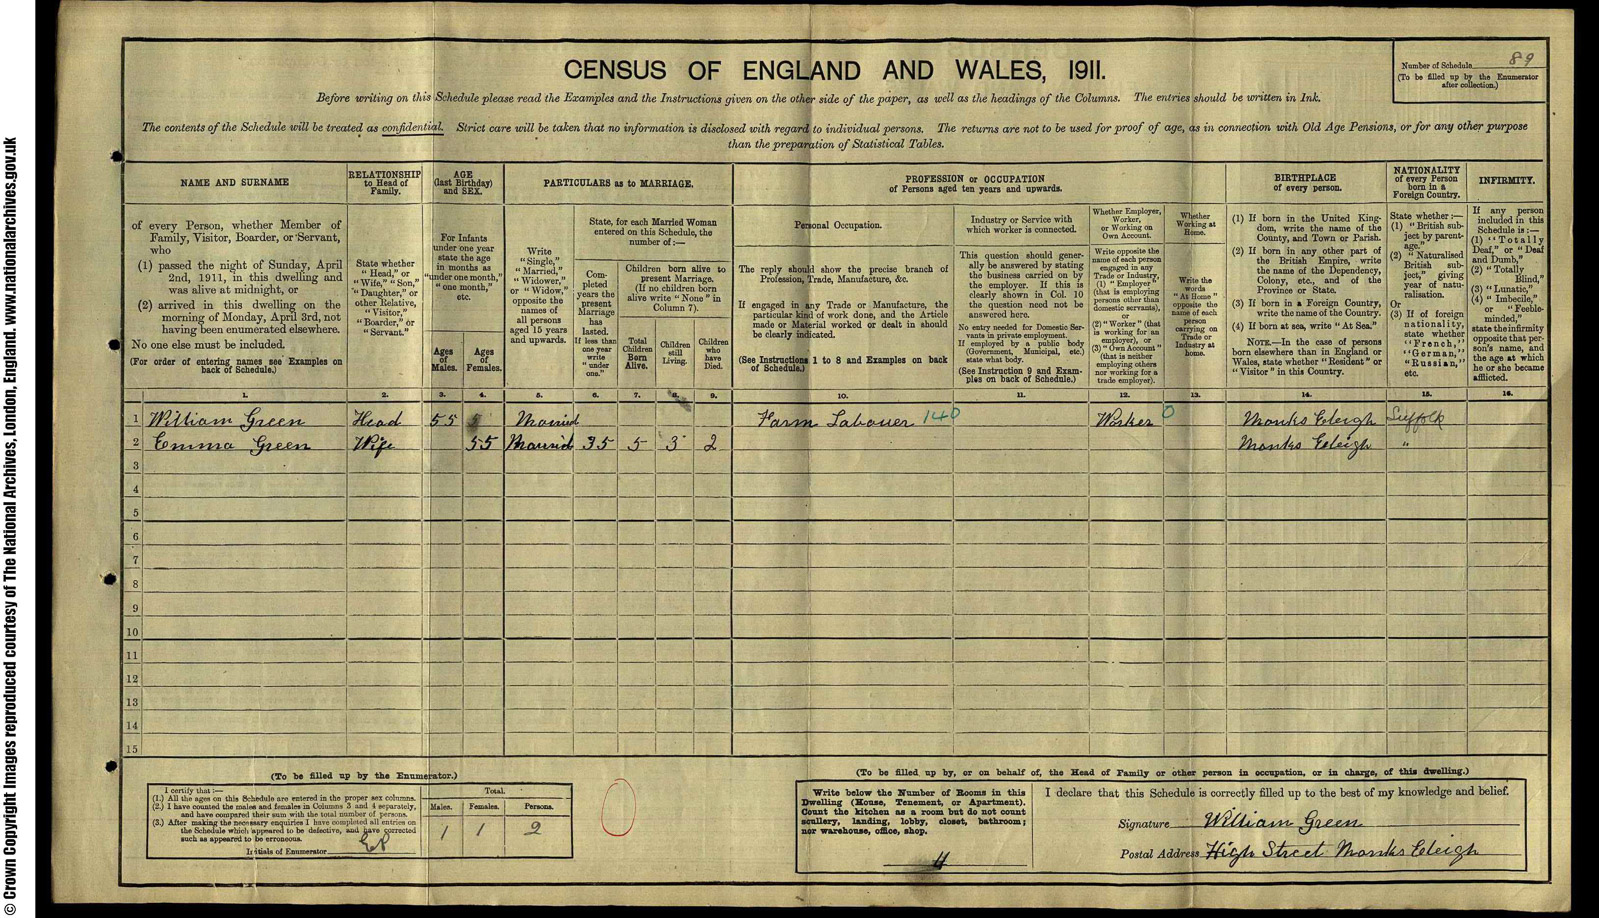 © Crown Copyright Images reproduced courtesy of The National Archives, London, England. www.nationalarchives.gov.uk
CENSUS OF ENGLAND AND WALES, 1911.
Number of Schedule 89
(To be filled up by the Enumerator
after collection.)
Before writing on this Schedule please read the Examples and the Instructions given on the other side of the paper, as well as the headings of the Columns. The entries should be written in Ink.
The contents of the Schedule will be treated as confidential. Strict care will be taken that no information is disclosed with regard to individual persons. The returns are not to be used for proof of age, as in connection with Old Age Pensions, or for any other purpose
than the preparation of Statistical Tables.
NAME AND SURNAME
of every Person, whether Member of
Family, Visitor, Boarder, or Servant,
who
(1) passed the night of Sunday, April
2nd, 1911, in this dwelling and
was alive at midnight, or
(2) arrived in this dwelling on the
morning of Monday, April 3rd, not
having been enumerated elsewhere.
No one else must be included.
(For order of entering names see Examples on
back of Schedule.)
RELATIONSHIP
to Head of
Family.
State whether
"Head," or
"Wife," "Son,"
"Daughter," or
other Relative,
"Visitor,"
"Boarder," or
"Servant."
AGE
(last Birthday)
and SEX.
For Infants
under one year
state the age
in months as
"under one month,"
"one month,"
etc.
Ages
of
Males.
Ages
of
Females.
PARTICULARS as to MARRIAGE.
Write
"Single,"
"Married,"
"Widower,"
or "Widow,"
opposite the
names of
all persons
aged 15 years
and upwards.
State, for each Married Woman
entered on this Schedule, the
number of:—
Com-
pleted
years the
present
Marriage
has
lasted.
If less than
one year
write
"under
one."
Children born alive to
present Marriage.
(If no children born
alive write "None" in
Column 7).
Total
Children
Born
Alive.
Children
still
Living.
Children
who
have
Died.
PROFESSION or OCCUPATION
of Persons aged ten years and upwards.
Personal Occupation.
The reply should show the precise branch of
Profession, Trade, Manufacture, &c.
If engaged in any Trade or Manufacture, the
particular kind of work done, and the Article
made or Material worked or dealt in should
be clearly indicated.
(See Instructions 1 to 8 and Examples on back
of Schedule.)
Industry or Service with
which worker is connected.
This question should gener-
ally be answered by stating
the business carried on by
the employer. If this is
clearly shown in Col. 10
the question need not be
answered here.
No entry needed for Domestic Ser-
vants in private employment.
If employed by a public body
(Government, Municipal, etc.)
state what body.
(See Instruction 9 and Exam-
ples on back of Schedule.)
Whether Employer,
Worker,
or Working on
Own Account.
Write opposite the
name of each person
engaged in any
Trade or Industry,
(1) "Employer"
(that is employing
persons other than
domestic servants),
or
(2) "Worker" (that
is working for an
employer), or
(3) "Own Account"
(that is neither
employing others
nor working for a
trade employer).
Whether
Working at
Home.
Write the
words
"At Home"
opposite the
name of each
person
carrying on
Trade or
Industry at
home.
BIRTHPLACE
of every person.
(1) If born in the United King-
dom, write the name of the
County, and Town or Parish.
(2) If born in any other part of
the British Empire, write
the name of the Dependency,
Colony, etc., and of the
Province or State.
(3) If born in a Foreign Country,
write the name of the Country.
(4) If born at sea, write "At Sea."
NOTE.—In the case of persons
born elsewhere than in England or
Wales, state whether "Resident" or
"Visitor" in this Country.
NATIONALITY
of every Person
born in a
Foreign Country.
State whether:—
(1) "British sub-
ject by parent-
age."
(2) "Naturalised
British sub-
ject," giving
year of natu-
ralisation.
Or
(3) If of foreign
nationality,
state whether
"French,"
"German,"
"Russian,"
etc.
INFIRMITY.
If any person
included in this
Schedule is:—
(1) "Totally
Deaf," or "Deaf
and Dumb,"
(2) "Totally
Blind,"
(3) "Lunatic,"
(4) "Imbecile,"
or "Feeble-
minded,"
state the infirmity
opposite that per-
son's name, and
the age at which
he or she became
afflicted.
1. 2. 3. 4. 5. 6. 7. 8. 9. 10. 11. 12. 13. 14. 15. 16.
1 William Green Head 55 Married Farm Labouer 140 Worker 0 Monks Eleigh Suffolk
2 Emma Green Wife 55 Married 35 5 3 2 Monks Eleigh "
3
4
5
6
7
8
9
10
11
12
13
14
15
(To be filled up by the Enumerator.)
I certify that:—
(1.) All the ages on this Schedule are entered in the proper sex columns.
(2.) I have counted the males and females in Columns 3 and 4 separately,
and have compared their sum with the total number of persons.
(3.) After making the necessary enquiries I have completed all entries on
the Schedule which appeared to be defective, and have corrected
such as appeared to be erroneous.
Initials of Enumerator EP
Total.
Males. Females. Persons.
1 1 2
0
(To be filled up by, or on behalf of, the Head of Family or other person in occupation, or in charge, of this dwelling.)
Write below the Number of Rooms in this
Dwelling (House, Tenement, or Apartment).
Count the kitchen as a room but do not count
scullery, landing, lobby, closet, bathroom;
nor warehouse, office, shop.
4
I declare that this Schedule is correctly filled up to the best of my knowledge and belief.
Signature William Green
Postal Address High Street Monks Eleigh